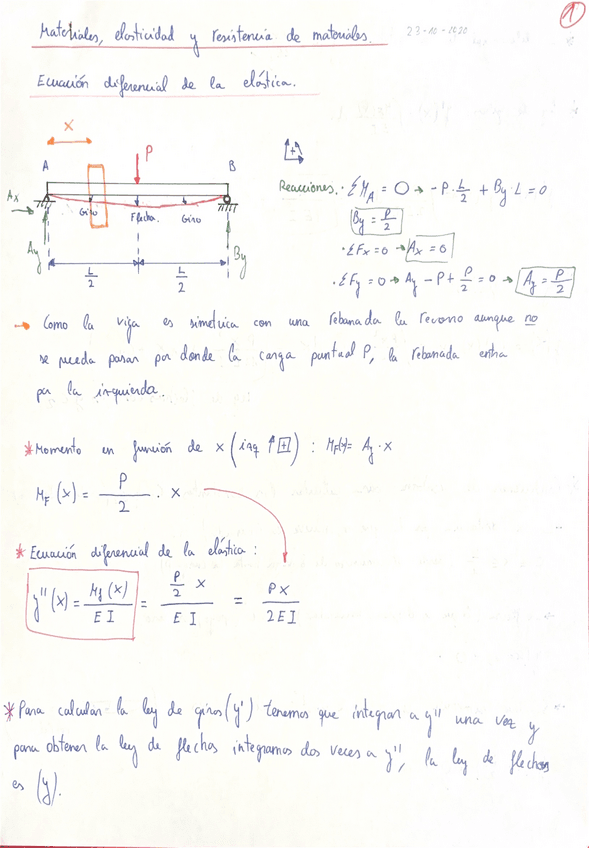 1
Materiales, elasticidad y resistencia de materiales. 23-10-2020
Ecuación diferencial de la elástica.
x
P
A
B
Ax
Giro
Flecha.
Giro
Ay
By
L/2
L/2
+
Reacciones. · ΣM_A = 0 → -P · L/2 + By · L = 0
By = P/2
· ΣFx = 0 → Ax = 0
· ΣFy = 0 → Ay - P + P/2 = 0 → Ay = P/2
→ Como la viga es simetrica con una rebanada la recorro aunque no
se pueda pasar por donde la carga puntual P, la rebanada entra
por la izquierda.
* Momento en función de x (izq ↑ +) : MF(x) = Ay · x
MF (x) = P/2 · x
* Ecuación diferencial de la elástica :
y''(x) = Mf (x)/E I = P/2 x/E I = P x/2 E I
* Para calcular la ley de giros (y') tenemos que integrar a y'' una vez y
para obtener la ley de flechas integramos dos veces a y'', la ley de flechas
es (y).